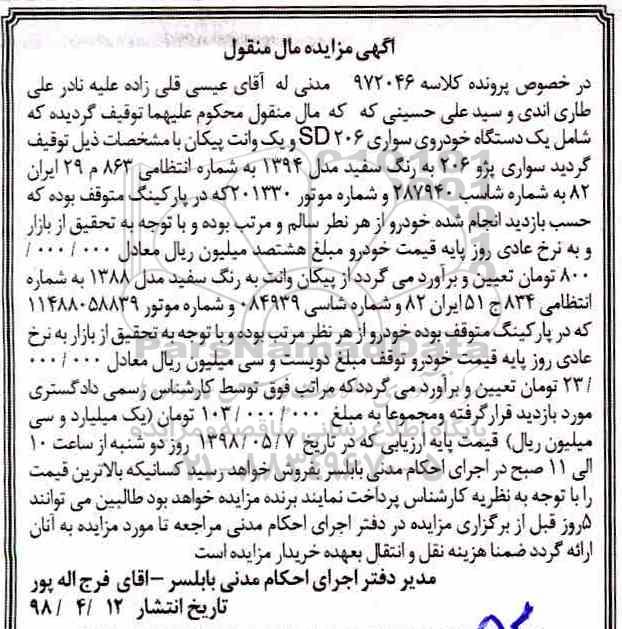 آگهی مزایده مال منقول
در خصوص پرونده کلاسه ۹۷۲۰۴۶ مدنی له آقای عیسی قلی زاده علیه نادر علی
طاری اندی و سید علی حسینی که که مال منقول محکوم علیهما توقیف گردیده که
شامل یک دستگاه خودروی سواری ۲۰۶ SD و یک وانت پیکان با مشخصات ذیل توقیف
گردید سواری پژو ۲۰۶ به رنگ سفید مدل ۱۳۹۴ به شماره انتظامی ۸۶۳ م ۲۹ ایران
۸۲ به شماره شاسب ۲۸۷۹۴۰ و شماره موتور ۲۰۱۳۳۰که در پارکینگ متوقف بوده که
حسب بازدید انجام شده خودرو از هر نطر سالم و مرتب بوده و با توجه به تحقیق از بازار
و به نرخ عادی روز پایه قیمت خودرو مبلغ هشتصد میلیون ریال معادل ۰۰۰ / ۰۰۰ /
۸۰۰ تومان تعیین و برآورد می گردد از پیکان وانت به رنگ سفید مدل ۱۳۸۸ به شماره
انتظامی ۸۳۴ ج ۵۱ ایران ۸۲ و شماره شاسی ۰۸۴۹۳۹ و شماره موتور ۱۱۴۸۸۰۵۸۸۳۹
که در پارکینگ متوقف بوده خودرو از هر نظر مرتب بوده و با توجه به تحقیق از بازار به نرخ
عادی روز پایه قیمت خودرو توقف مبلغ دویست و سی میلیون ریال معادل ۰۰۰ / ۰۰۰
/ ۲۳ تومان تعیین و برآورد می گرددکه مراتب فوق توسط کارشناس رسمی دادگستری
مورد بازدید قرارگرفته ومجموعا به مبلغ ۰۰۰ / ۰۰۰ / ۱۰۳ تومان (یک میلیارد و سی
میلیون ریال) قیمت پایه ارزیابی که در تاریخ ۱۳۹۸/۰۵/۷ روز دو شنبه از ساعت ۱۰
الی ۱۱ صبح در اجرای احکام مدنی بابلسر بفروش خواهد رسید کسانیکه بالاترین قیمت
را با توجه به نظریه کارشناس پرداخت نمایند برنده مزایده خواهد بود طالبین می توانند
۵روز قبل از برگزاری مزایده در دفتر اجرای احکام مدنی مراجعه تا مورد مزایده به آنان
ارائه گردد ضمنا هزینه نقل و انتقال بعهده خریدار مزایده است
مدیر دفتر اجرای احکام مدنی بابلسر –اقای فرج اله پور
تاریخ انتشار ۱۲ /۴ / ۹۸
ParsNamadData
پایگاه اطلاع رسانی مناقصه و مزایده
۰۲۱-۸۸۳۴۹۶۷۰-۵